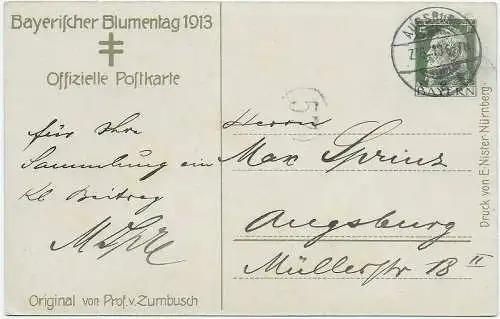 Bayerischer Blumentag 1913
Offizielle Postkarte
für Ihre
Sammlung ein
Kl Beitrag
Original von Prof. v. Zumbusch
5
Herrn
Max Sprinz
Augsburg
Müllerstr 18 II
AUGSBURG
BAYERN
Druck von E. Nister Nürnberg.